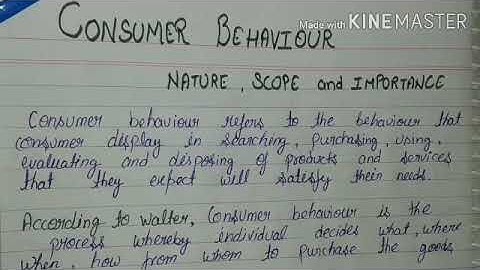 Made with KINEMASTER
CONSUMER BEHAVIOUR
NATURE, SCOPE and IMPORTANCE
Consumer behaviour refers to the behaviour that
consumer display in searching, purchasing, using,
evaluating and disposing of products and services
that they expect will satisfy their needs.
According to walter, Consumer behaviour is the
process whereby individual decides what, where
when, how from whom to purchase the goods